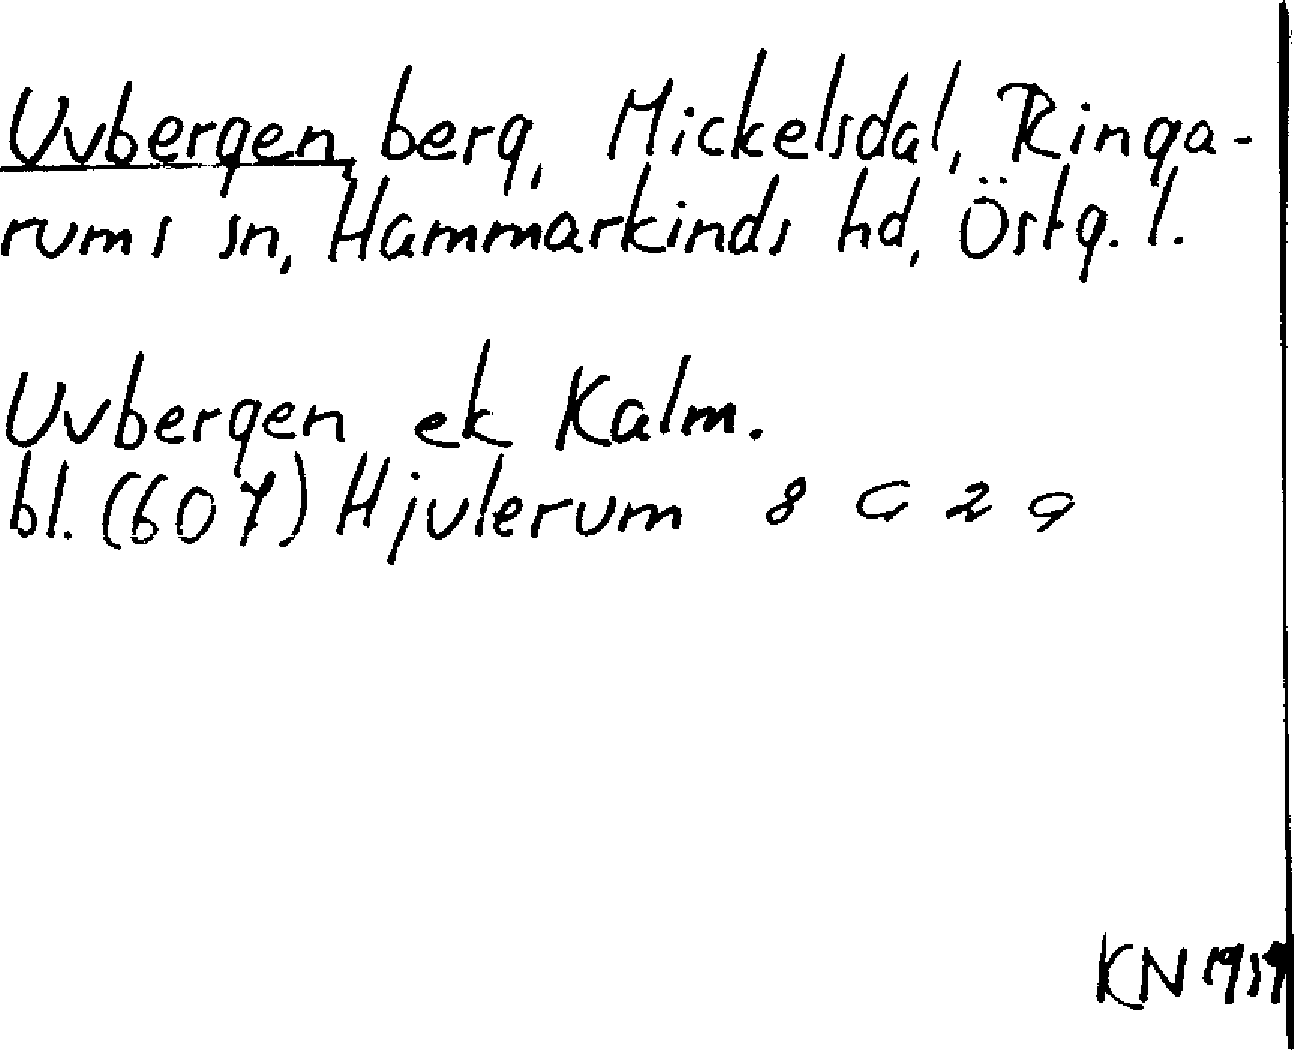 Uvbergen, berg, Mickelsdal, Ringa-
rums sn, Hammarkinds hd, Östg. l.
Uvbergen ek Kalm.
bl. (607) Hjulerum 8 G 2 a
KN